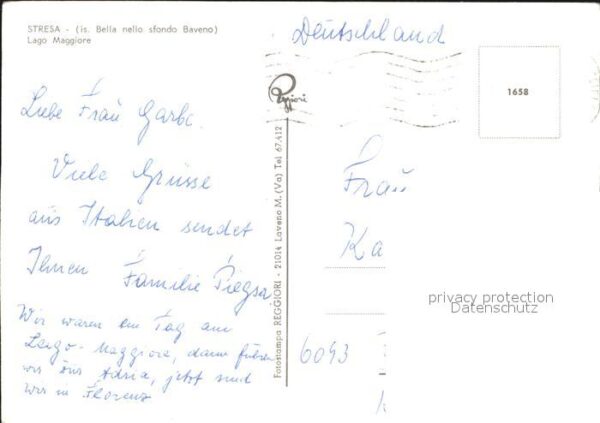 STRESA - (is. Bella nello sfondo Baveno)
Lago Maggiore
Deutschland
Reggiori
1658
Liebe Frau Garbe.
Viele Grüsse
aus Italien sendet
Ihnen Familie Piegsa
Wir waren ein Tag am
Largo-Maggiore, dann führen
wir ans Adria, jetzt sind
wir in Florenz
Fotostampa REGGIORI - 21014 Laveno M. (Va) Tel 67.412
Frau
Ka
6093
privacy protection
Datenschutz